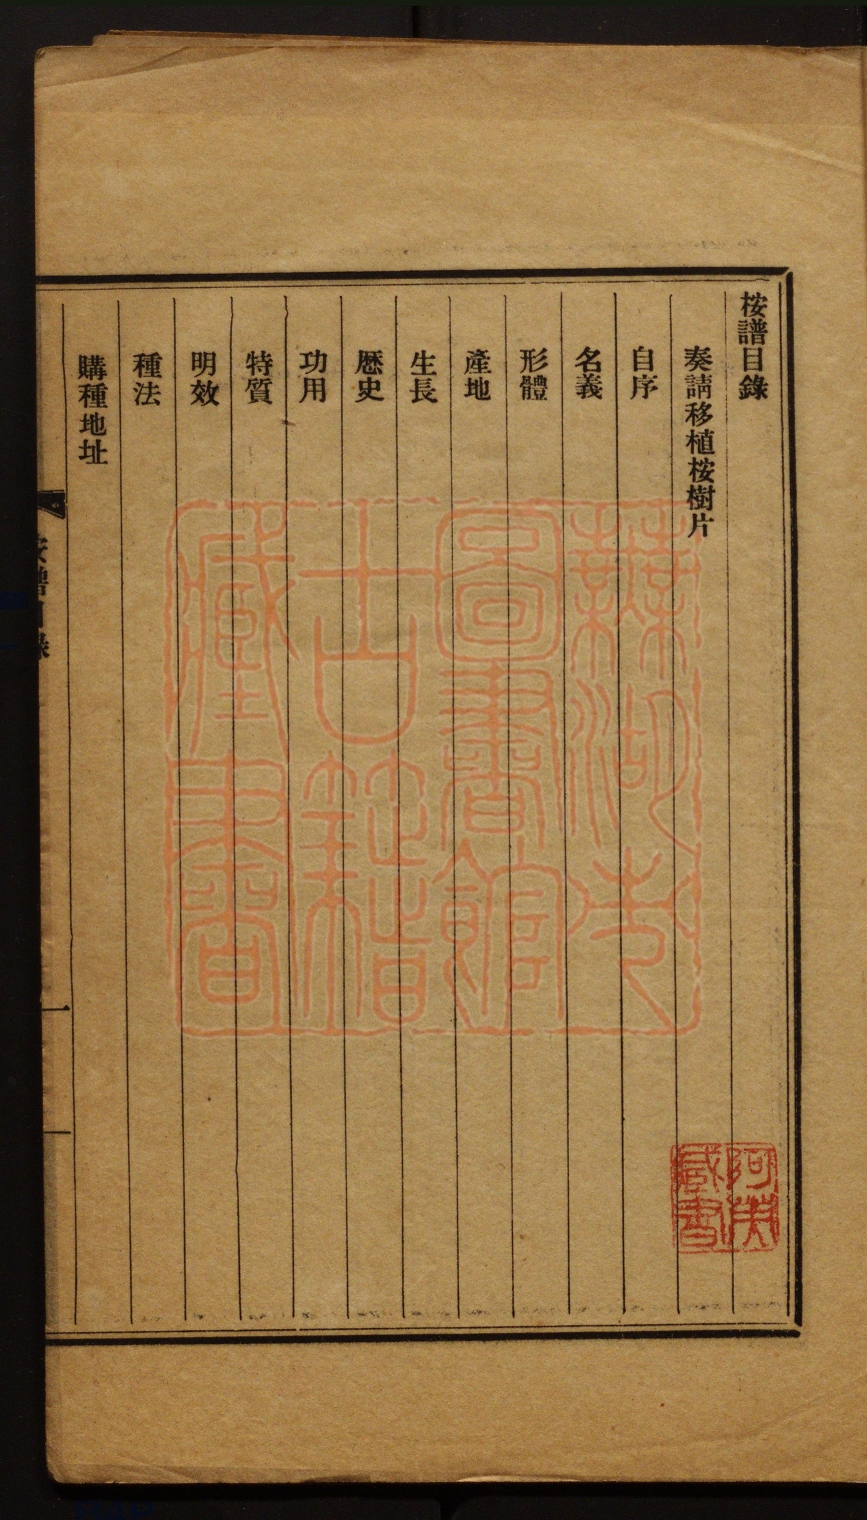 桉譜目錄
奏請移植桉樹片
自序
名義
形體
產地
生長
歷史
功用
特質
明效
種法
購種地址
蕪湖市
圖書館
古籍
藏書
阿英
藏書